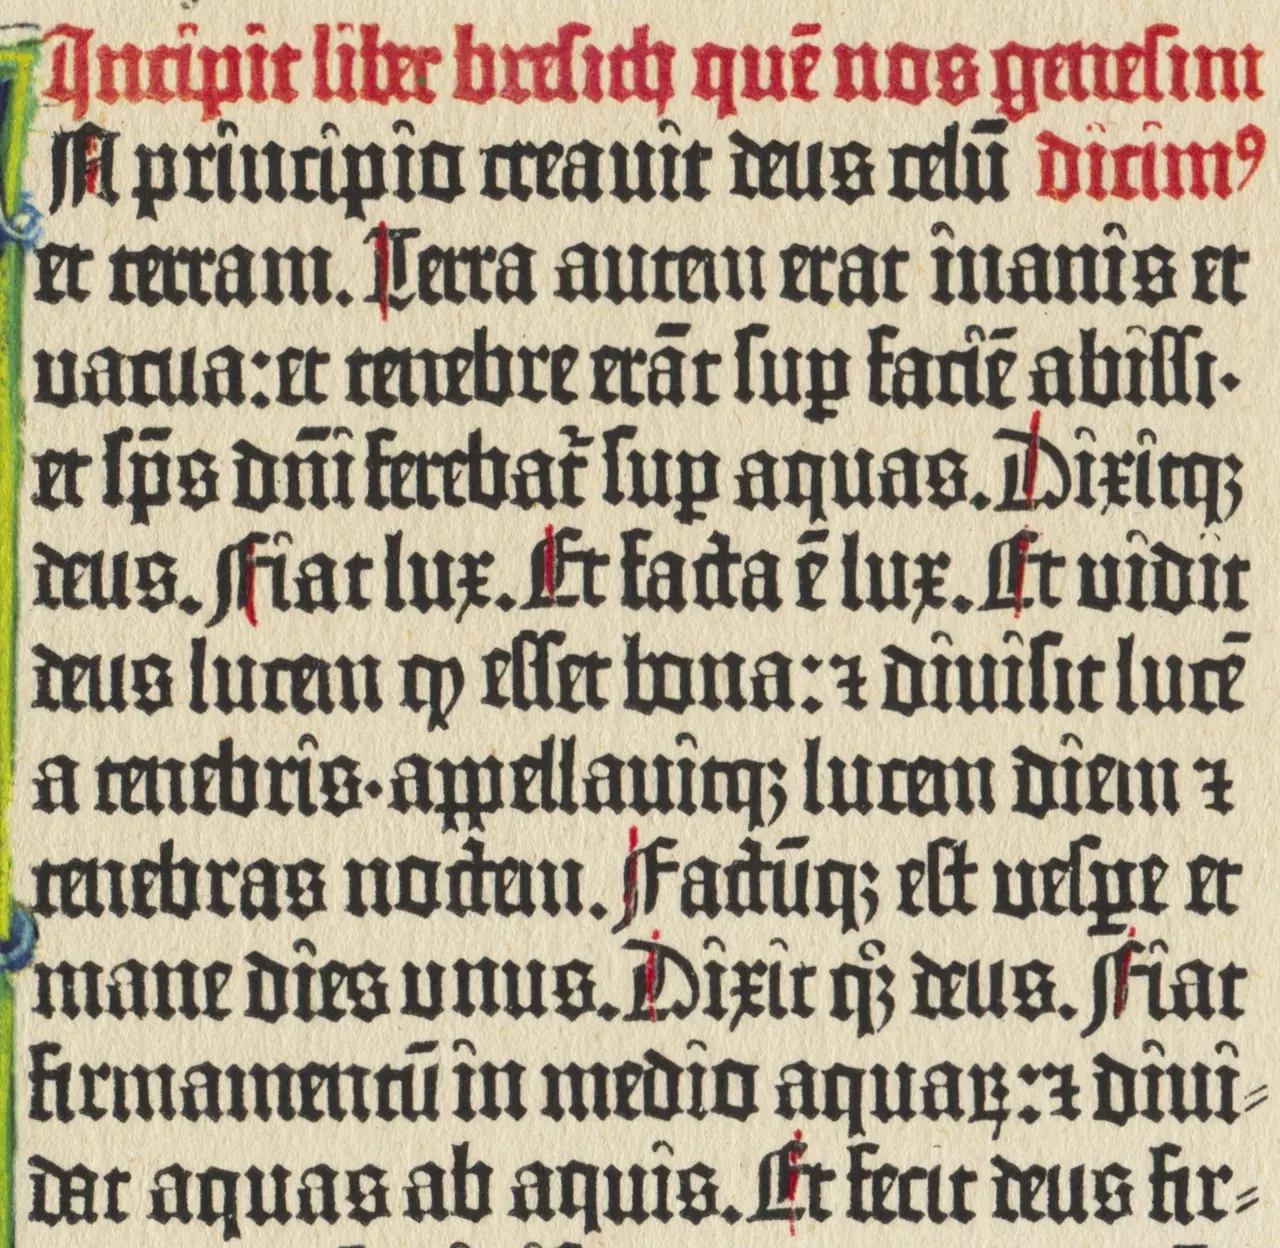 Incipit liber bresith quē nos genesim
A principio creauit deus celū dicimꝰ
et terram. Terra autem erat inanis et
uacua: et tenebre erāt sup̱ faciē abissi.
et sp̄s dn̄i ferebat᷑ sup̱ aquas. Dixitqꝫ
deus. Fiat lux. Et facta ē lux. Et vidit
deus lucem ꝙ esset bona: ⁊ diuisit lucē
a tenebris. appellauitqꝫ lucem diem ⁊
tenebras noctem. Factūqꝫ est uesꝑe et
mane dies unus. Dixit qꝫ deus. Fiat
firmamentū in medio aquaꝝ: ⁊ diui⸗
dat aquas ab aquis. Et fecit deus fir⸗